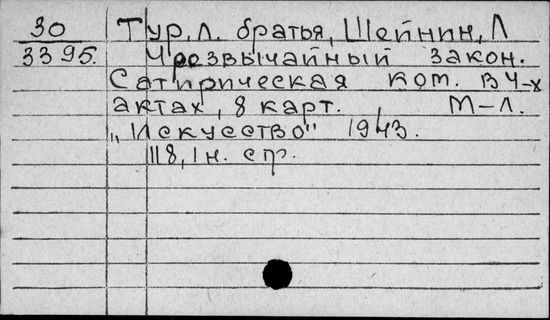 30 Тур, л. братья, Шейнин, Л
3395. Чрезвычайный закон.
Сатирическая ком. в 4-х
актах, 8 карт. М-Л.
„Искусство" 1943.
118, 1 н. стр.